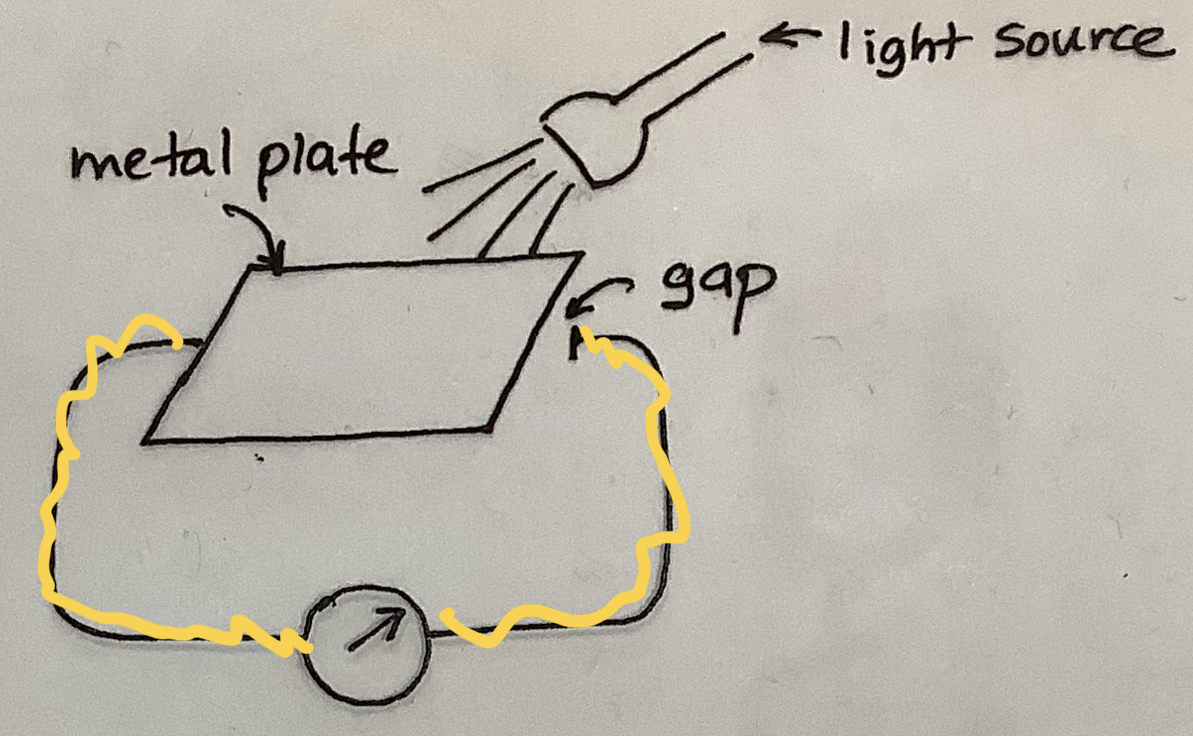 light source
metal plate
gap